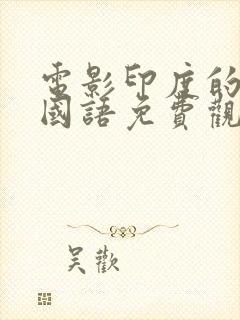 電影印度的
國語免費觀
吳歡